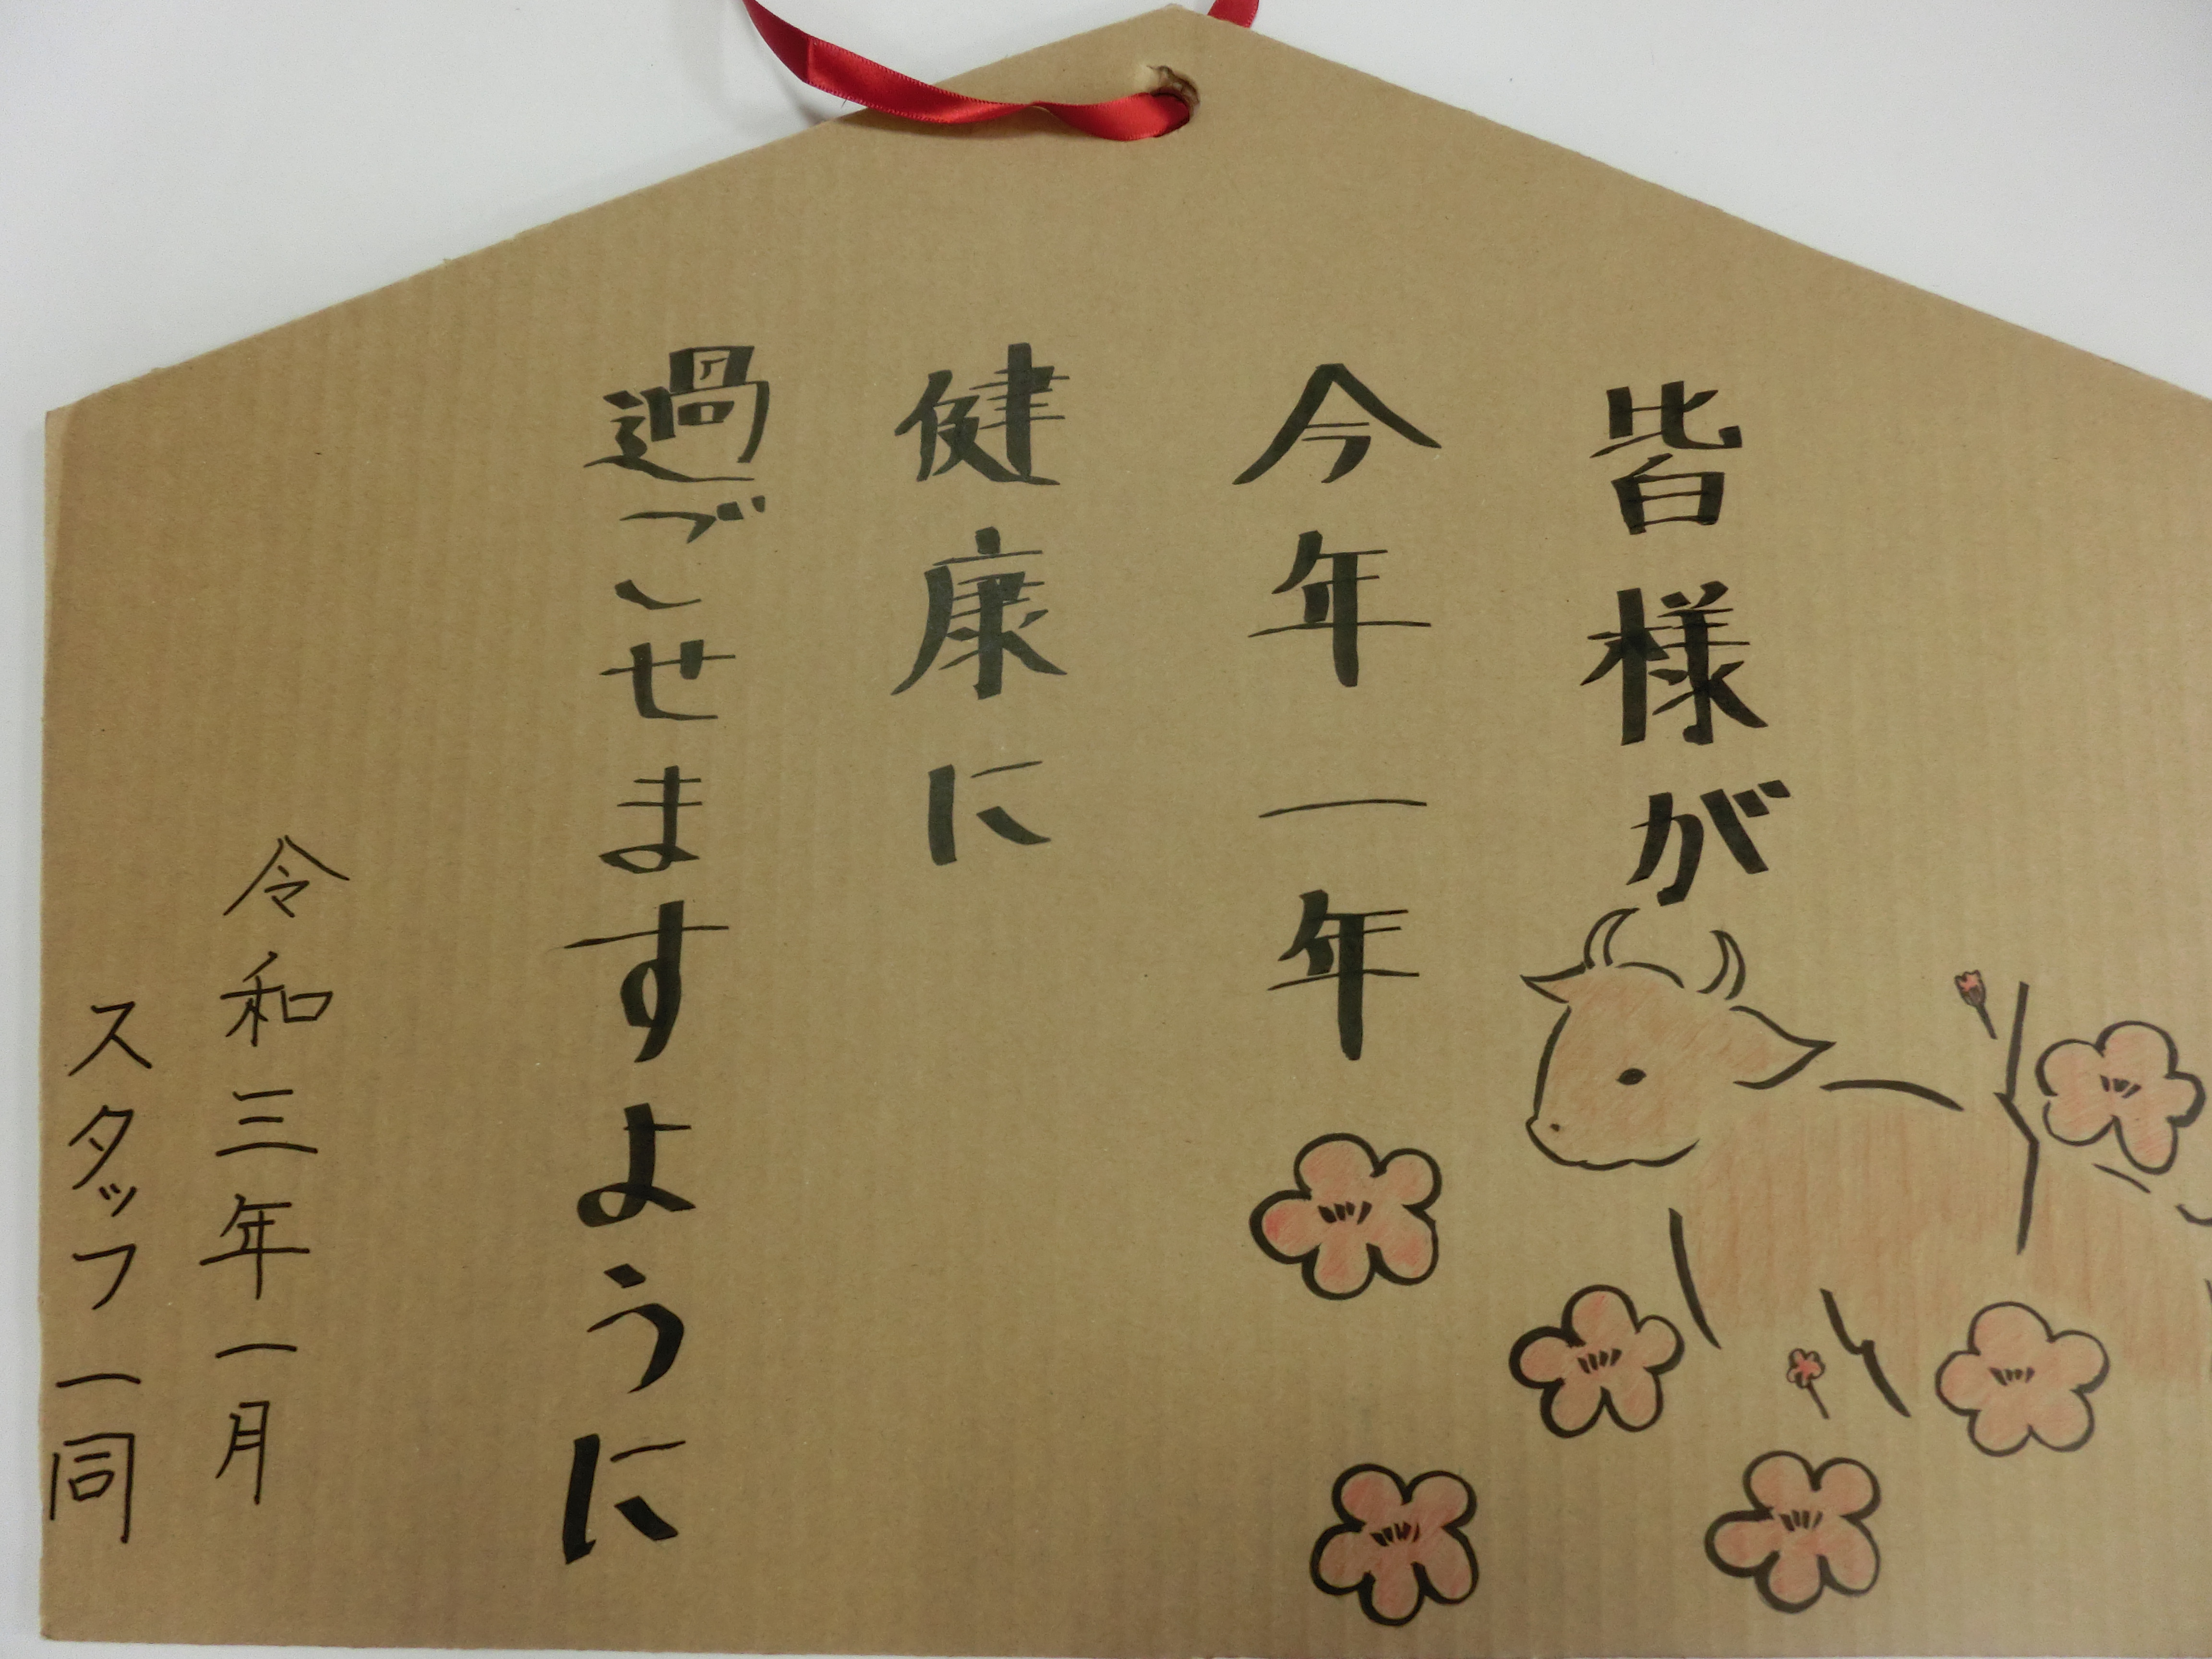 皆様が
今年一年
健康に
過ごせますように
令和三年一月
スタッフ一同